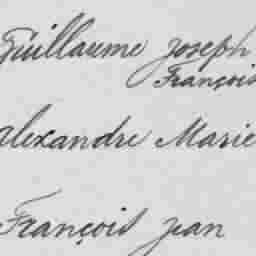 Guillaume Joseph
François
Alexandre Marie
François Jean